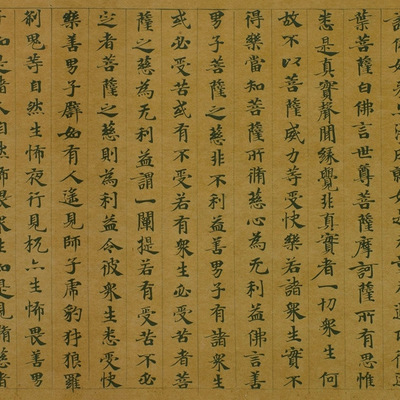 葉菩薩白佛言世尊菩薩摩訶薩所有思惟
悉是真實聲聞緣覺非真實者一切衆生何
故不以菩薩威力等受快樂若諸衆生實不
得樂當知菩薩所脩慈心為无利益佛言善
男子菩薩之慈非不利益善男子有諸衆生
或必受苦或有不受若有衆生必受苦者菩
薩之慈為无利益謂一闡提若有受苦不必
定者菩薩之慈則為利益令彼衆生悉受快
樂善男子譬如有人遙見師子虎豹犲狼羅
剎鬼等自然生怖夜行見杌亦生怖畏善男
子如是諸人自然怖畏衆生如是見脩慈者